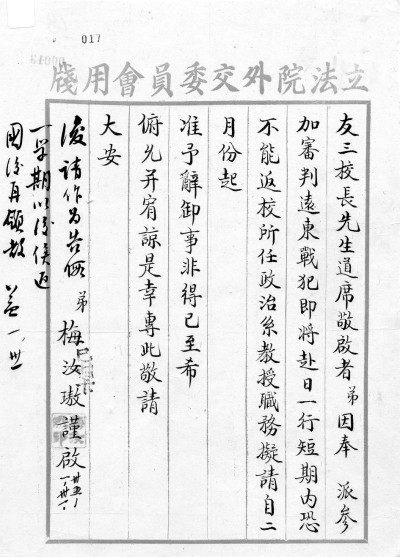 017
立法院外交委員會用牋
友三校長先生道席敬啟者弟因奉 派參
加審判遠東戰犯即將赴日一行短期內恐
不能返校所任政治系教授職務擬請自二
月份起
准予辭卸事非得已至希
俯允并宥諒是幸專此敬請
大安
弟 梅汝璈 謹啟
卅五、一、卅一、
復請作为告假
一学期以後俟返
國後再領教
一、卅一